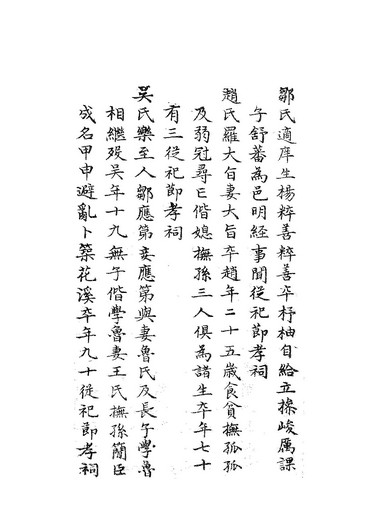 鄒氏適庠生楊粹善粹善卒杼柚自給立操峻厲課
子舒蕃為邑明經事聞從祀節孝祠
趙氏羅大旨妻大旨卒趙年二十五歲食貧撫孤孤
及弱冠尋亡偕媳撫孫三人俱為諸生卒年七十
有三從祀節孝祠
吳氏樂至人鄒應第妾應第與妻魯氏及長子學魯
相繼歿吳年十九無子偕學魯妻王氏撫孫簡臣
成名甲申避亂卜築花溪卒年九十從祀節孝祠